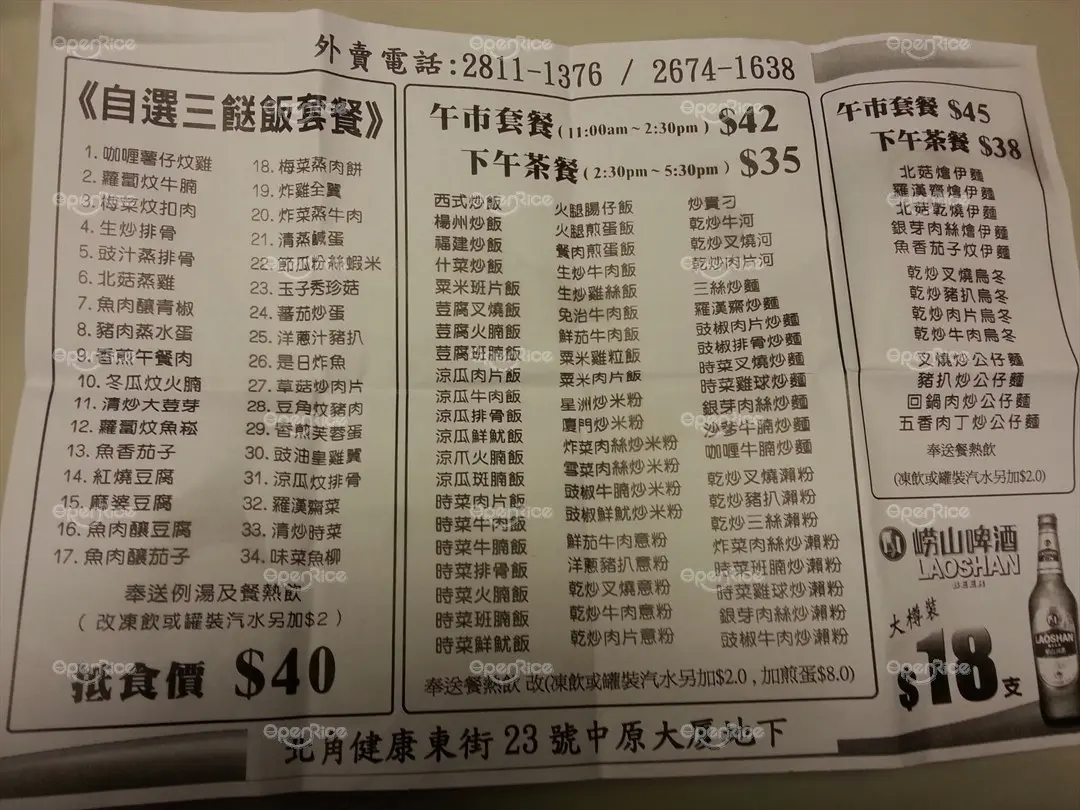 外賣電話:2811-1376 / 2674-1638
《自選三餸飯套餐》
1. 咖喱薯仔炆雞
2. 蘿蔔炆牛腩
3. 梅菜炆扣肉
4. 生炒排骨
5. 豉汁蒸排骨
6. 北菇蒸雞
7. 魚肉釀青椒
8. 豬肉蒸水蛋
9. 香煎午餐肉
10. 冬瓜炆火腩
11. 清炒大荳芽
12. 蘿蔔炆魚崧
13. 魚香茄子
14. 紅燒豆腐
15. 麻婆豆腐
16. 魚肉釀豆腐
17. 魚肉釀茄子
18. 梅菜蒸肉餅
19. 炸雞全翼
20. 炸菜蒸牛肉
21. 清蒸鹹蛋
22. 節瓜粉絲蝦米
23. 玉子秀珍菇
24. 蕃茄炒蛋
25. 洋蔥汁豬扒
26. 是日炸魚
27. 草菇炒肉片
28. 豆角炆豬肉
29. 香煎芙蓉蛋
30. 豉油皇雞翼
31. 涼瓜炆排骨
32. 羅漢齋菜
33. 清炒時菜
34. 味菜魚柳
奉送例湯及餐熱飲
( 改凍飲或罐裝汽水另加$2 )
抵食價 $40
午市套餐 ( 11:00am ~ 2:30pm ) $42
下午茶餐 ( 2:30pm ~ 5:30pm ) $35
西式炒飯
楊州炒飯
福建炒飯
什菜炒飯
粟米班片飯
荳腐叉燒飯
荳腐火腩飯
荳腐班腩飯
涼瓜肉片飯
涼瓜牛肉飯
涼瓜排骨飯
涼瓜鮮魷飯
涼爪火腩飯
涼瓜斑腩飯
時菜肉片飯
時菜牛肉飯
時菜牛腩飯
時菜排骨飯
時菜火腩飯
時菜班腩飯
時菜鮮魷飯
火腿腸仔飯
火腿煎蛋飯
餐肉煎蛋飯
生炒牛肉飯
生炒雞絲飯
免治牛肉飯
鮮茄牛肉飯
粟米雞粒飯
粟米肉片飯
星洲炒米粉
廈門炒米粉
炸菜肉絲炒米粉
雪菜肉絲炒米粉
豉椒牛腩炒米粉
豉椒鮮魷炒米粉
鮮茄牛肉意粉
洋蔥豬扒意粉
乾炒叉燒意粉
乾炒牛肉意粉
乾炒肉片意粉
炒貴刁
乾炒牛河
乾炒叉燒河
乾炒肉片河
三絲炒麵
羅漢齋炒麵
豉椒肉片炒麵
豉椒排骨炒麵
時菜叉燒炒麵
時菜雞球炒麵
銀芽肉絲炒麵
沙爹牛腩炒麵
咖喱牛腩炒麵
乾炒叉燒瀨粉
乾炒豬扒瀨粉
乾炒三絲瀨粉
炸菜肉絲炒瀨粉
時菜班腩炒瀨粉
時菜雞球炒瀨粉
銀芽肉絲炒瀨粉
豉椒牛肉炒瀨粉
奉送餐熱飲 改(凍飲或罐裝汽水另加$2.0 , 加煎蛋$8.0)
午市套餐 $45
下午茶餐 $38
北菇燴伊麵
羅漢齋燴伊麵
北菇乾燒伊麵
銀芽肉絲燴伊麵
魚香茄子炆伊麵
乾炒叉燒烏冬
乾炒豬扒烏冬
乾炒肉片烏冬
乾炒牛肉烏冬
叉燒炒公仔麵
豬扒炒公仔麵
回鍋肉炒公仔麵
五香肉丁炒公仔麵
奉送餐熱飲
(凍飲或罐裝汽水另加$2.0)
嶗山啤酒
LAOSHAN
BEER
大樽裝
$18支
LAOSHAN
北角健康東街 23 號中原大厦地下
OpenRice